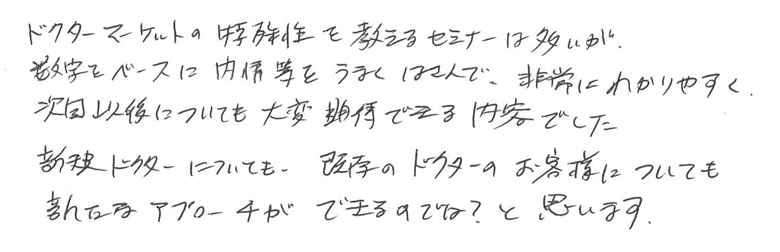 ドクターマーケットの特殊性を教えるセミナーは多いが、
数字をベースに内情等をうまくはさんで、非常にわかりやすく、
次回以後についても大変期待できる内容でした
新規ドクターについても、既存のドクターのお客様についても
新たなアプローチができるのでは？と思います。